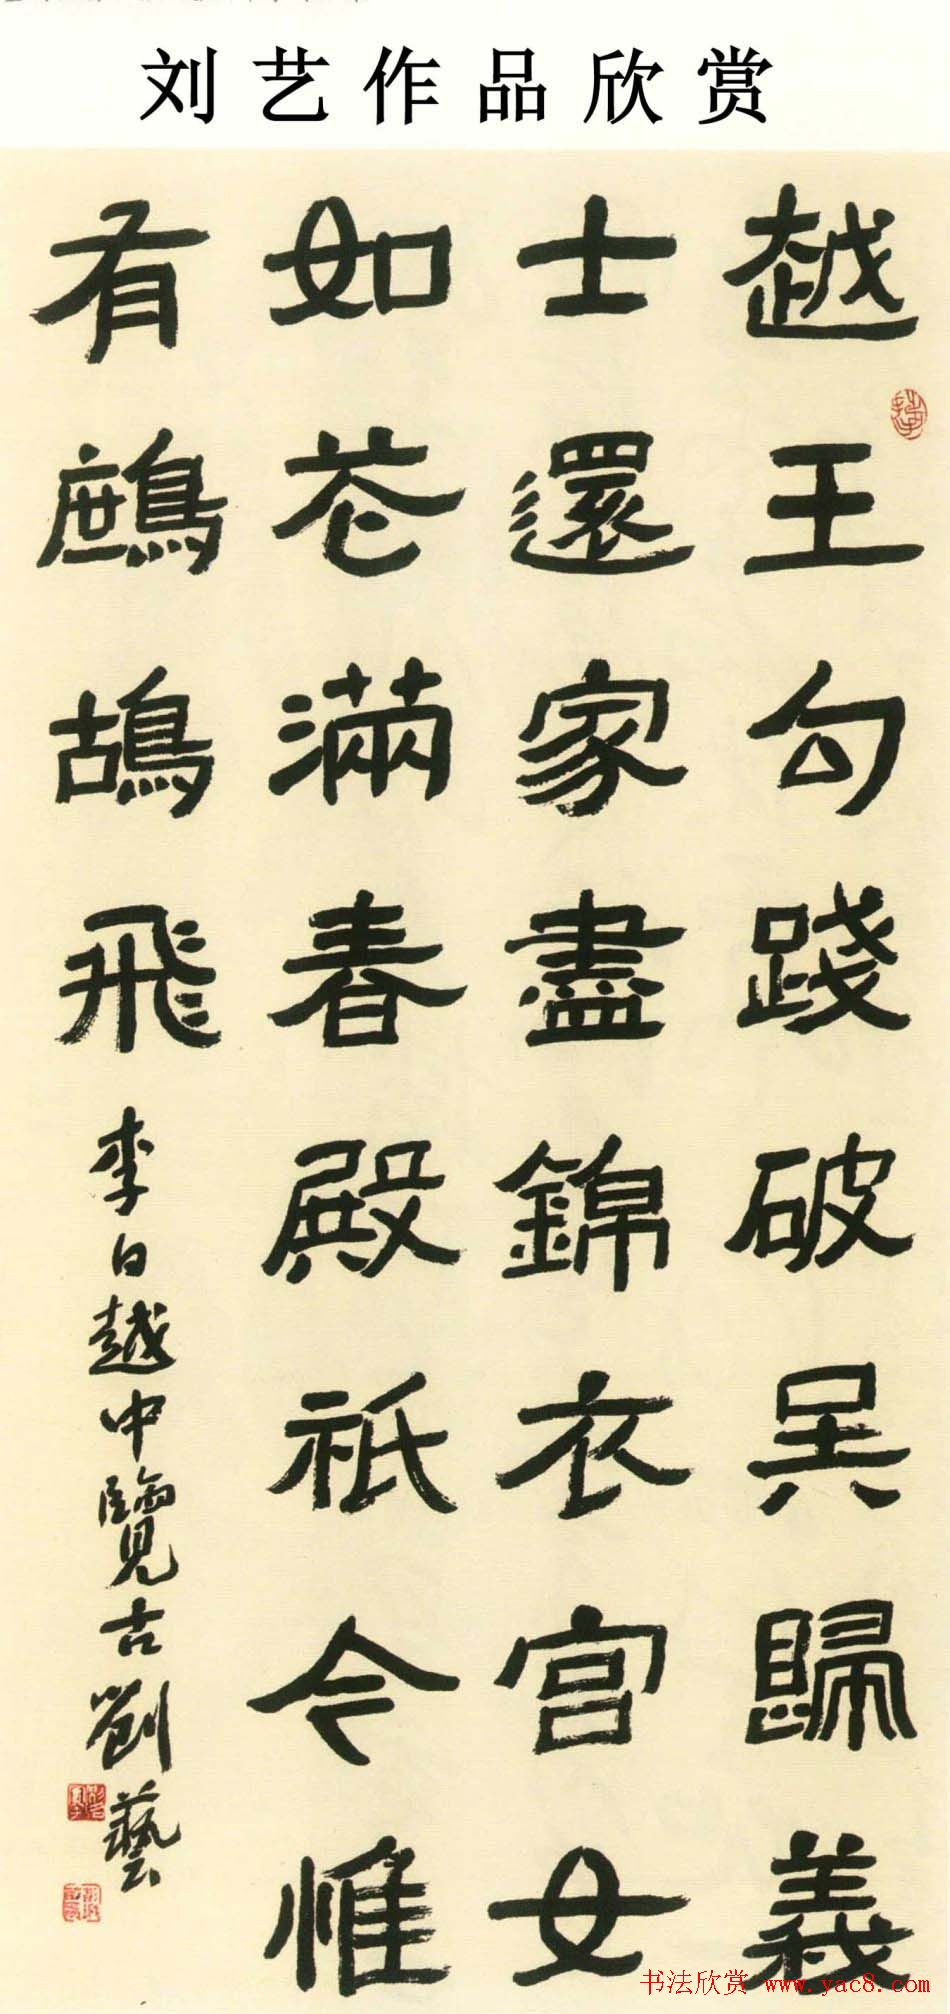 刘艺作品欣赏
越王勾踐破吴歸義
士還家盡錦衣宫女
如花滿春殿祇今惟
有鷓鴣飛
李白越中覽古劉藝
书法欣赏 www.yac8.com